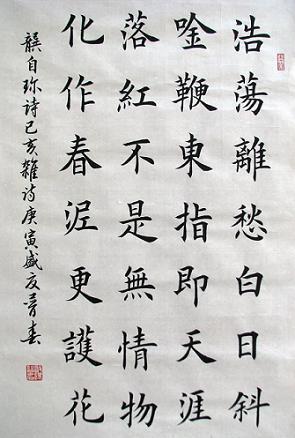 浩蕩離愁白日斜
唫鞭東指即天涯
落紅不是無情物
化作春泥更護花
龔自珍詩己亥雜诗庚寅盛夏